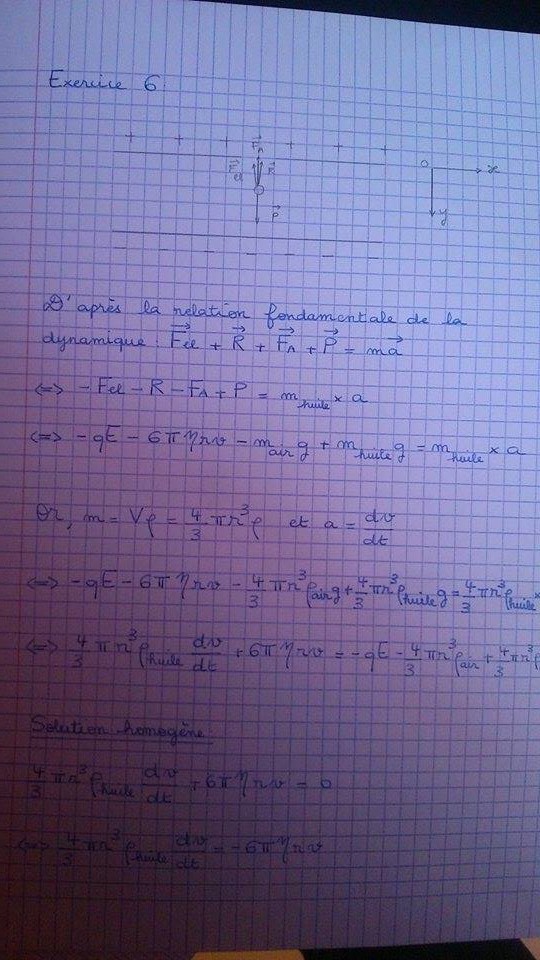 Exercice 6:
+ + + + + +
F⃗A
F⃗el R⃗
P⃗
O x
y
_ _ _ _ _ _
D'après la relation fondamentale de la
dynamique : F⃗el + R⃗ + F⃗A + P⃗ = ma⃗
<=> -Fel - R - FA + P = m huile × a
<=> -qE - 6πηrv - m air g + m huile g = m huile × a
Or, m = Vρ = 4/3 πr³ρ et a = dv/dt
<=> -qE - 6πηrv - 4/3 πr³ρair g + 4/3 πr³ρhuile g = 4/3 πr³ρhuile ×
<=> 4/3 πr³ρhuile dv/dt + 6πηrv = -qE - 4/3 πr³ρair + 4/3 πr³ρ
Solution homogène:
4/3 πr³ρhuile dv/dt + 6πηrv = 0
<=> 4/3 πr³ρhuile dv/dt = -6πηrv